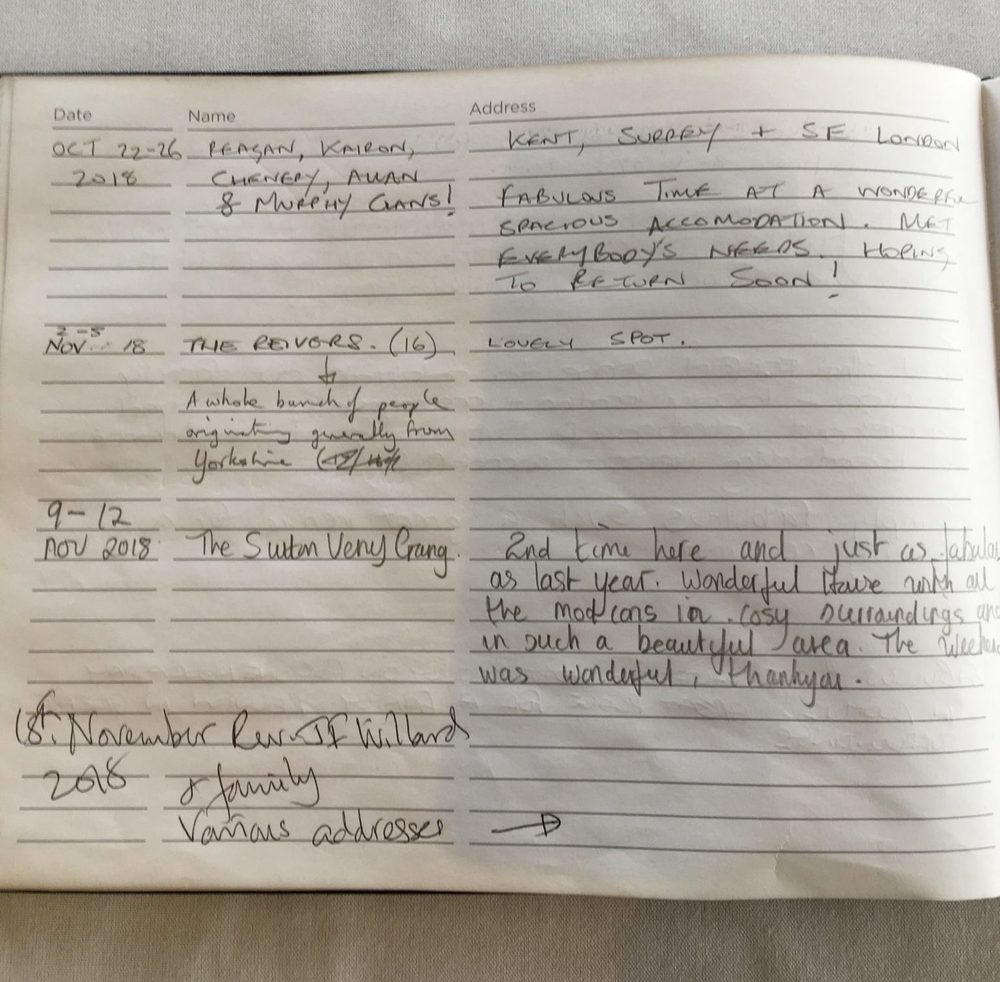 Date Name Address
OCT 22-26 REAGAN, KAIRON, KENT, SURREY + SE LONDON
2018 CHENERY, ALLAN FABULOUS TIME AT A WONDERFUL
& MURPHY CLANS! SPACIOUS ACCOMODATION. MET
EVERYBODY'S NEEDS. HOPING
TO RETURN SOON!
2-5
NOV 18 THE REIVERS. (16) LOVELY SPOT.
A whole bunch of people
originating generally from
Yorkshire
9-12
NOV 2018 The Sutton Veny Gang. 2nd time here and just as fabulous
as last year. Wonderful House with all
the mod cons in cosy surroundings and
in such a beautiful area. The Weekend
was wonderful, thankyou.
18th November Rev. JF Willard
2018 & family
Various addresses →